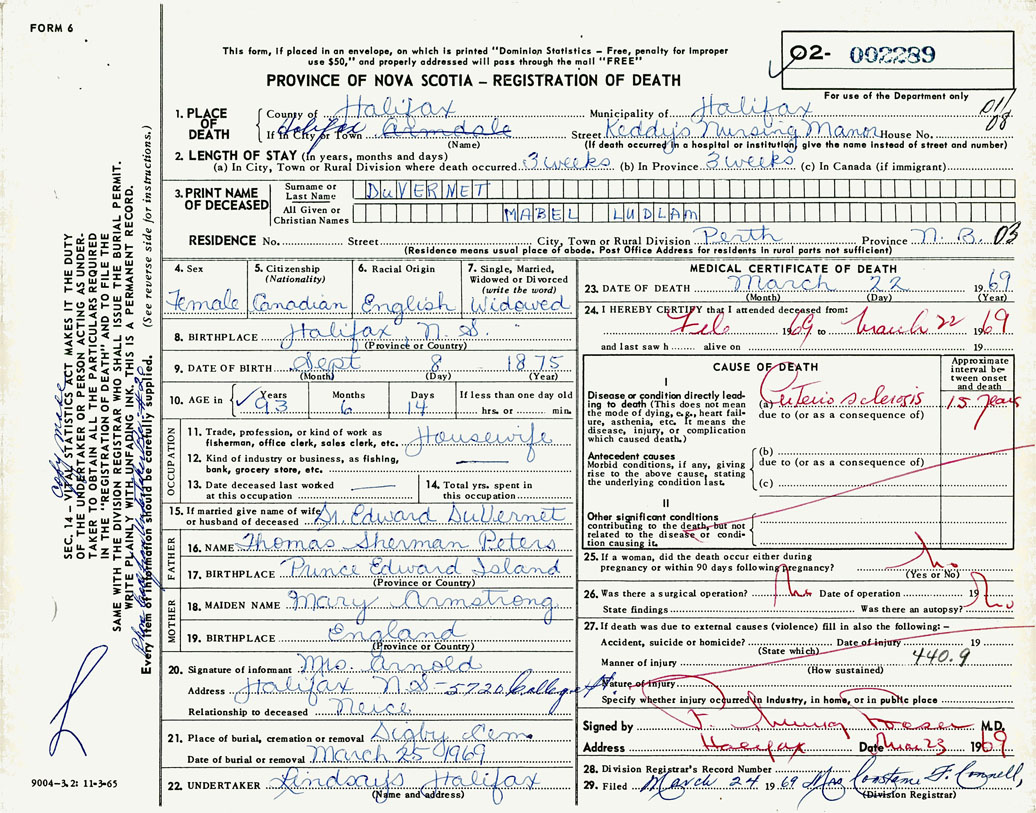 FORM 6
This form, if placed in an envelope, on which is printed "Dominion Statistics – Free, penalty for improper
use $50," and properly addressed will pass through the mail "FREE"
PROVINCE OF NOVA SCOTIA – REGISTRATION OF DEATH
02- 002289
For use of the Department only
1. PLACE OF DEATH
County of Halifax Municipality of Halifax
If in City or Town Halifax Armdale Street Keddy's Nursing Manor House No.
(Name) (If death occurred in a hospital or institution, give the name instead of street and number)
08
2. LENGTH OF STAY (In years, months and days)
(a) In City, Town or Rural Division where death occurred 3 weeks (b) In Province 3 weeks (c) In Canada (if immigrant)
3. PRINT NAME OF DECEASED
Surname or Last Name DuVERNET
All Given or Christian Names MABEL LUDLAM
RESIDENCE No. Street City, Town or Rural Division Perth Province N.B. 03
(Residence means usual place of abode. Post Office Address for residents in rural parts not sufficient)
4. Sex Female
5. Citizenship (Nationality) Canadian
6. Racial Origin English
7. Single, Married, Widowed or Divorced (write the word) Widowed
8. BIRTHPLACE Halifax, N.S.
(Province or Country)
9. DATE OF BIRTH Sept 8 1875
(Month) (Day) (Year)
10. AGE in Years 93 Months 6 Days 14 If less than one day old hrs. or min.
OCCUPATION
11. Trade, profession, or kind of work as fisherman, office clerk, sales clerk, etc. Housewife
12. Kind of industry or business, as fishing, bank, grocery store, etc.
13. Date deceased last worked at this occupation
14. Total yrs. spent in this occupation
15. If married give name of wife or husband of deceased Dr. Edward DuVernet
FATHER
16. NAME Thomas Sherman Peters
17. BIRTHPLACE Prince Edward Island
(Province or Country)
MOTHER
18. MAIDEN NAME Mary Armstrong
19. BIRTHPLACE England
(Province or Country)
20. Signature of informant Mrs. Arnold
Address Halifax N.S - 5720 College St.
Relationship to deceased Neice
21. Place of burial, cremation or removal Digby Cem.
Date of burial or removal March 25 1969
22. UNDERTAKER Lindsay's Halifax
(Name and address)
MEDICAL CERTIFICATE OF DEATH
23. DATE OF DEATH March 22 1969
(Month) (Day) (Year)
24. I HEREBY CERTIFY that I attended deceased from:
Feb 1969 to March 22 1969
and last saw h alive on 19
CAUSE OF DEATH
Approximate interval between onset and death
I
Disease or condition directly leading to death (This does not mean the mode of dying, e.g., heart failure, asthenia, etc. It means the disease, injury, or complication which caused death.)
(a) Arteriosclerosis 15 years
due to (or as a consequence of)
Antecedent causes
Morbid conditions, if any, giving rise to the above cause, stating the underlying condition last.
(b)
due to (or as a consequence of)
(c)
II
Other significant conditions
contributing to the death, but not related to the disease or condition causing it.
25. If a woman, did the death occur either during
pregnancy or within 90 days following pregnancy? No
(Yes or No)
26. Was there a surgical operation? No Date of operation 19
State findings Was there an autopsy? No
27. If death was due to external causes (violence) fill in also the following: –
Accident, suicide or homicide? Date of injury 19
(State which)
440.9
Manner of injury
(How sustained)
Nature of injury
Specify whether injury occurred in industry, in home, or in public place
Signed by M.D.
Address Halifax Date Mar 23 1969
28. Division Registrar's Record Number
29. Filed March 24 1969 Mrs
(Division Registrar)
SEC. 14 – VITAL STATISTICS ACT MAKES IT THE DUTY
OF THE UNDERTAKER OR PERSON ACTING AS UNDER-
TAKER TO OBTAIN ALL THE PARTICULARS REQUIRED
IN THE "REGISTRATION OF DEATH" AND TO FILE THE
SAME WITH THE DIVISION REGISTRAR WHO SHALL ISSUE THE BURIAL PERMIT.
WRITE PLAINLY WITH UNFADING INK. THIS IS A PERMANENT RECORD.
Every item of information should be carefully supplied. (See reverse side for instructions.)
9004-3.2: 11-3-65